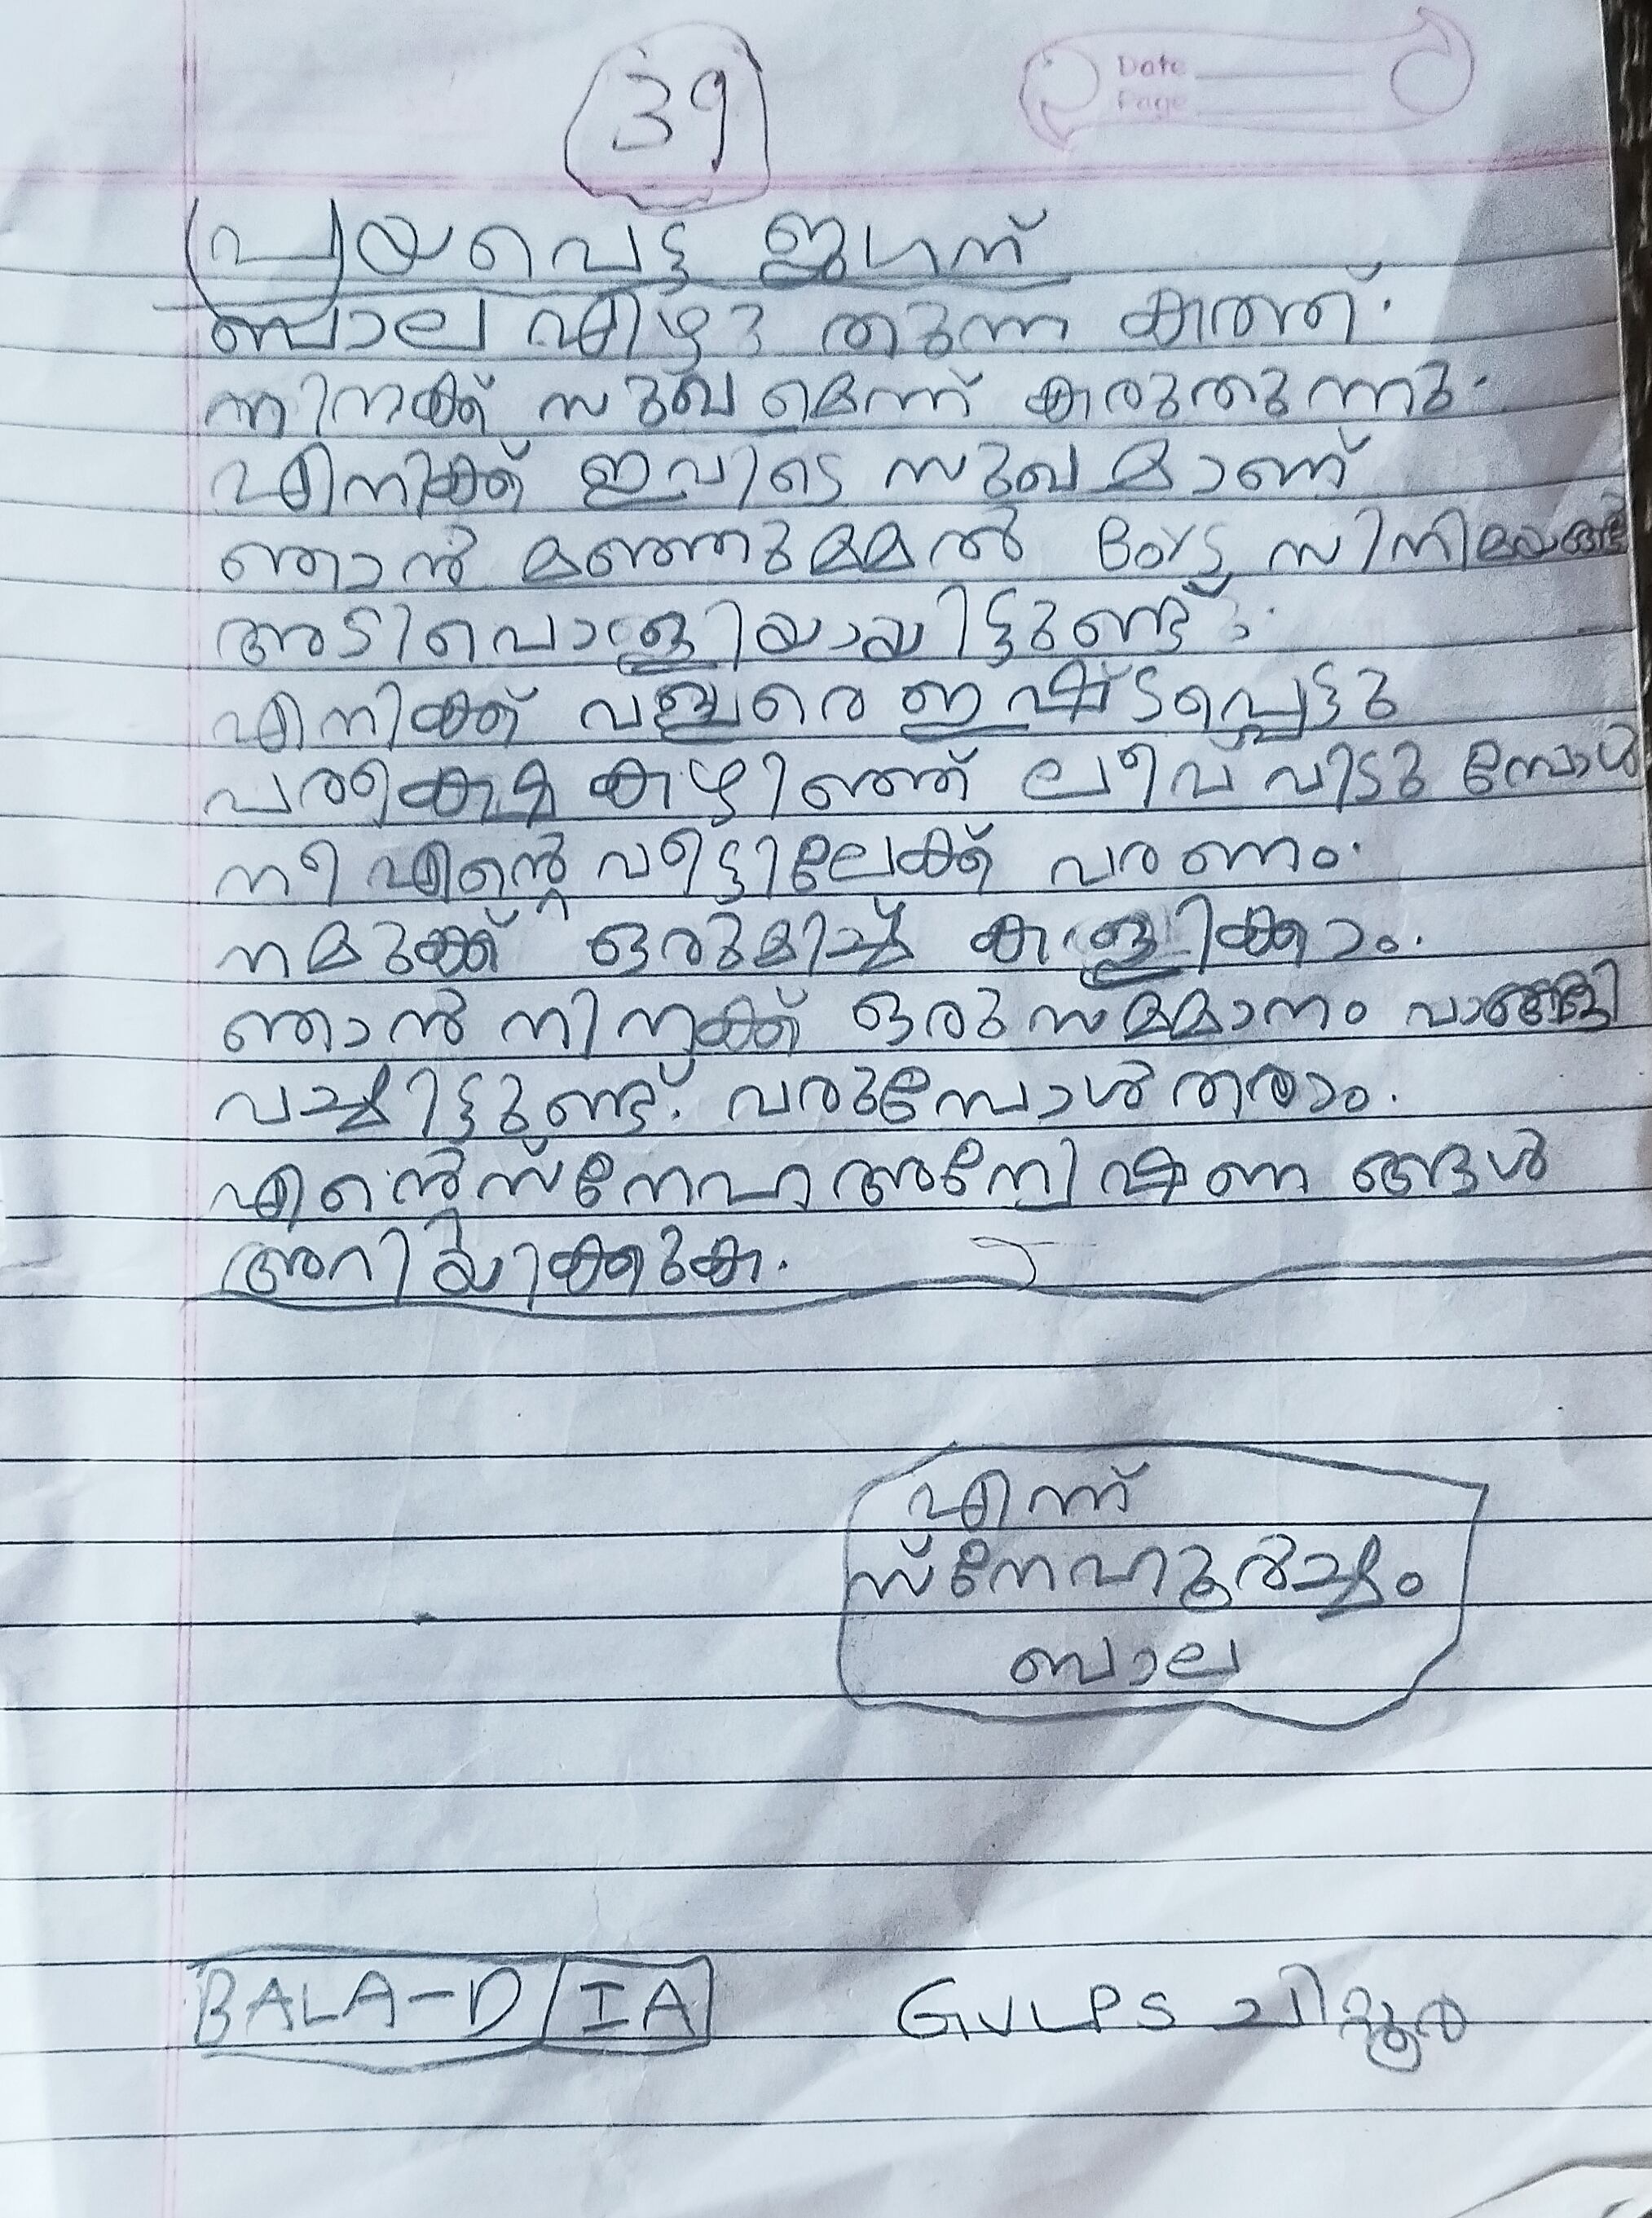 39
Date
Page
പ്രയപെട്ട ജഗന്
ബാല എഴു തുന്ന കത്ത്.
നിനക്ക് സുഖമെന്ന് കരുതുന്നു.
എനിക്ക് ഇവിടെ സുഖമാണ്
ഞാൻ മഞ്ഞുമമൽ Boys
അടിപൊളിയായിട്ടുണ്ട്.
എനിക്ക് വളരെ ഇഷ്ടപ്പെട്ടു
കഴിഞ്ഞ് ലീവ് വിടുമ്പോൾ
നീ എന്റെ വീട്ടിലേക്ക് വരണം.
നമുക്ക് ഒരുമിച്ച് കളിക്കാം.
ഞാൻ നിനക്ക് ഒരു സമമാനം വാങ്ങി
വച്ചിട്ടുണ്ട്. വരുമ്പോൾ തരാം.
എന്റെ സ്നേഹ അന്വേഷണ ങ്ങൾ
അറിയിക്കുക.
എന്ന്
സ്നേഹപൂർവ്വം
ബാല
BALA-D IA
GVLPS ചിറ്റൂർ